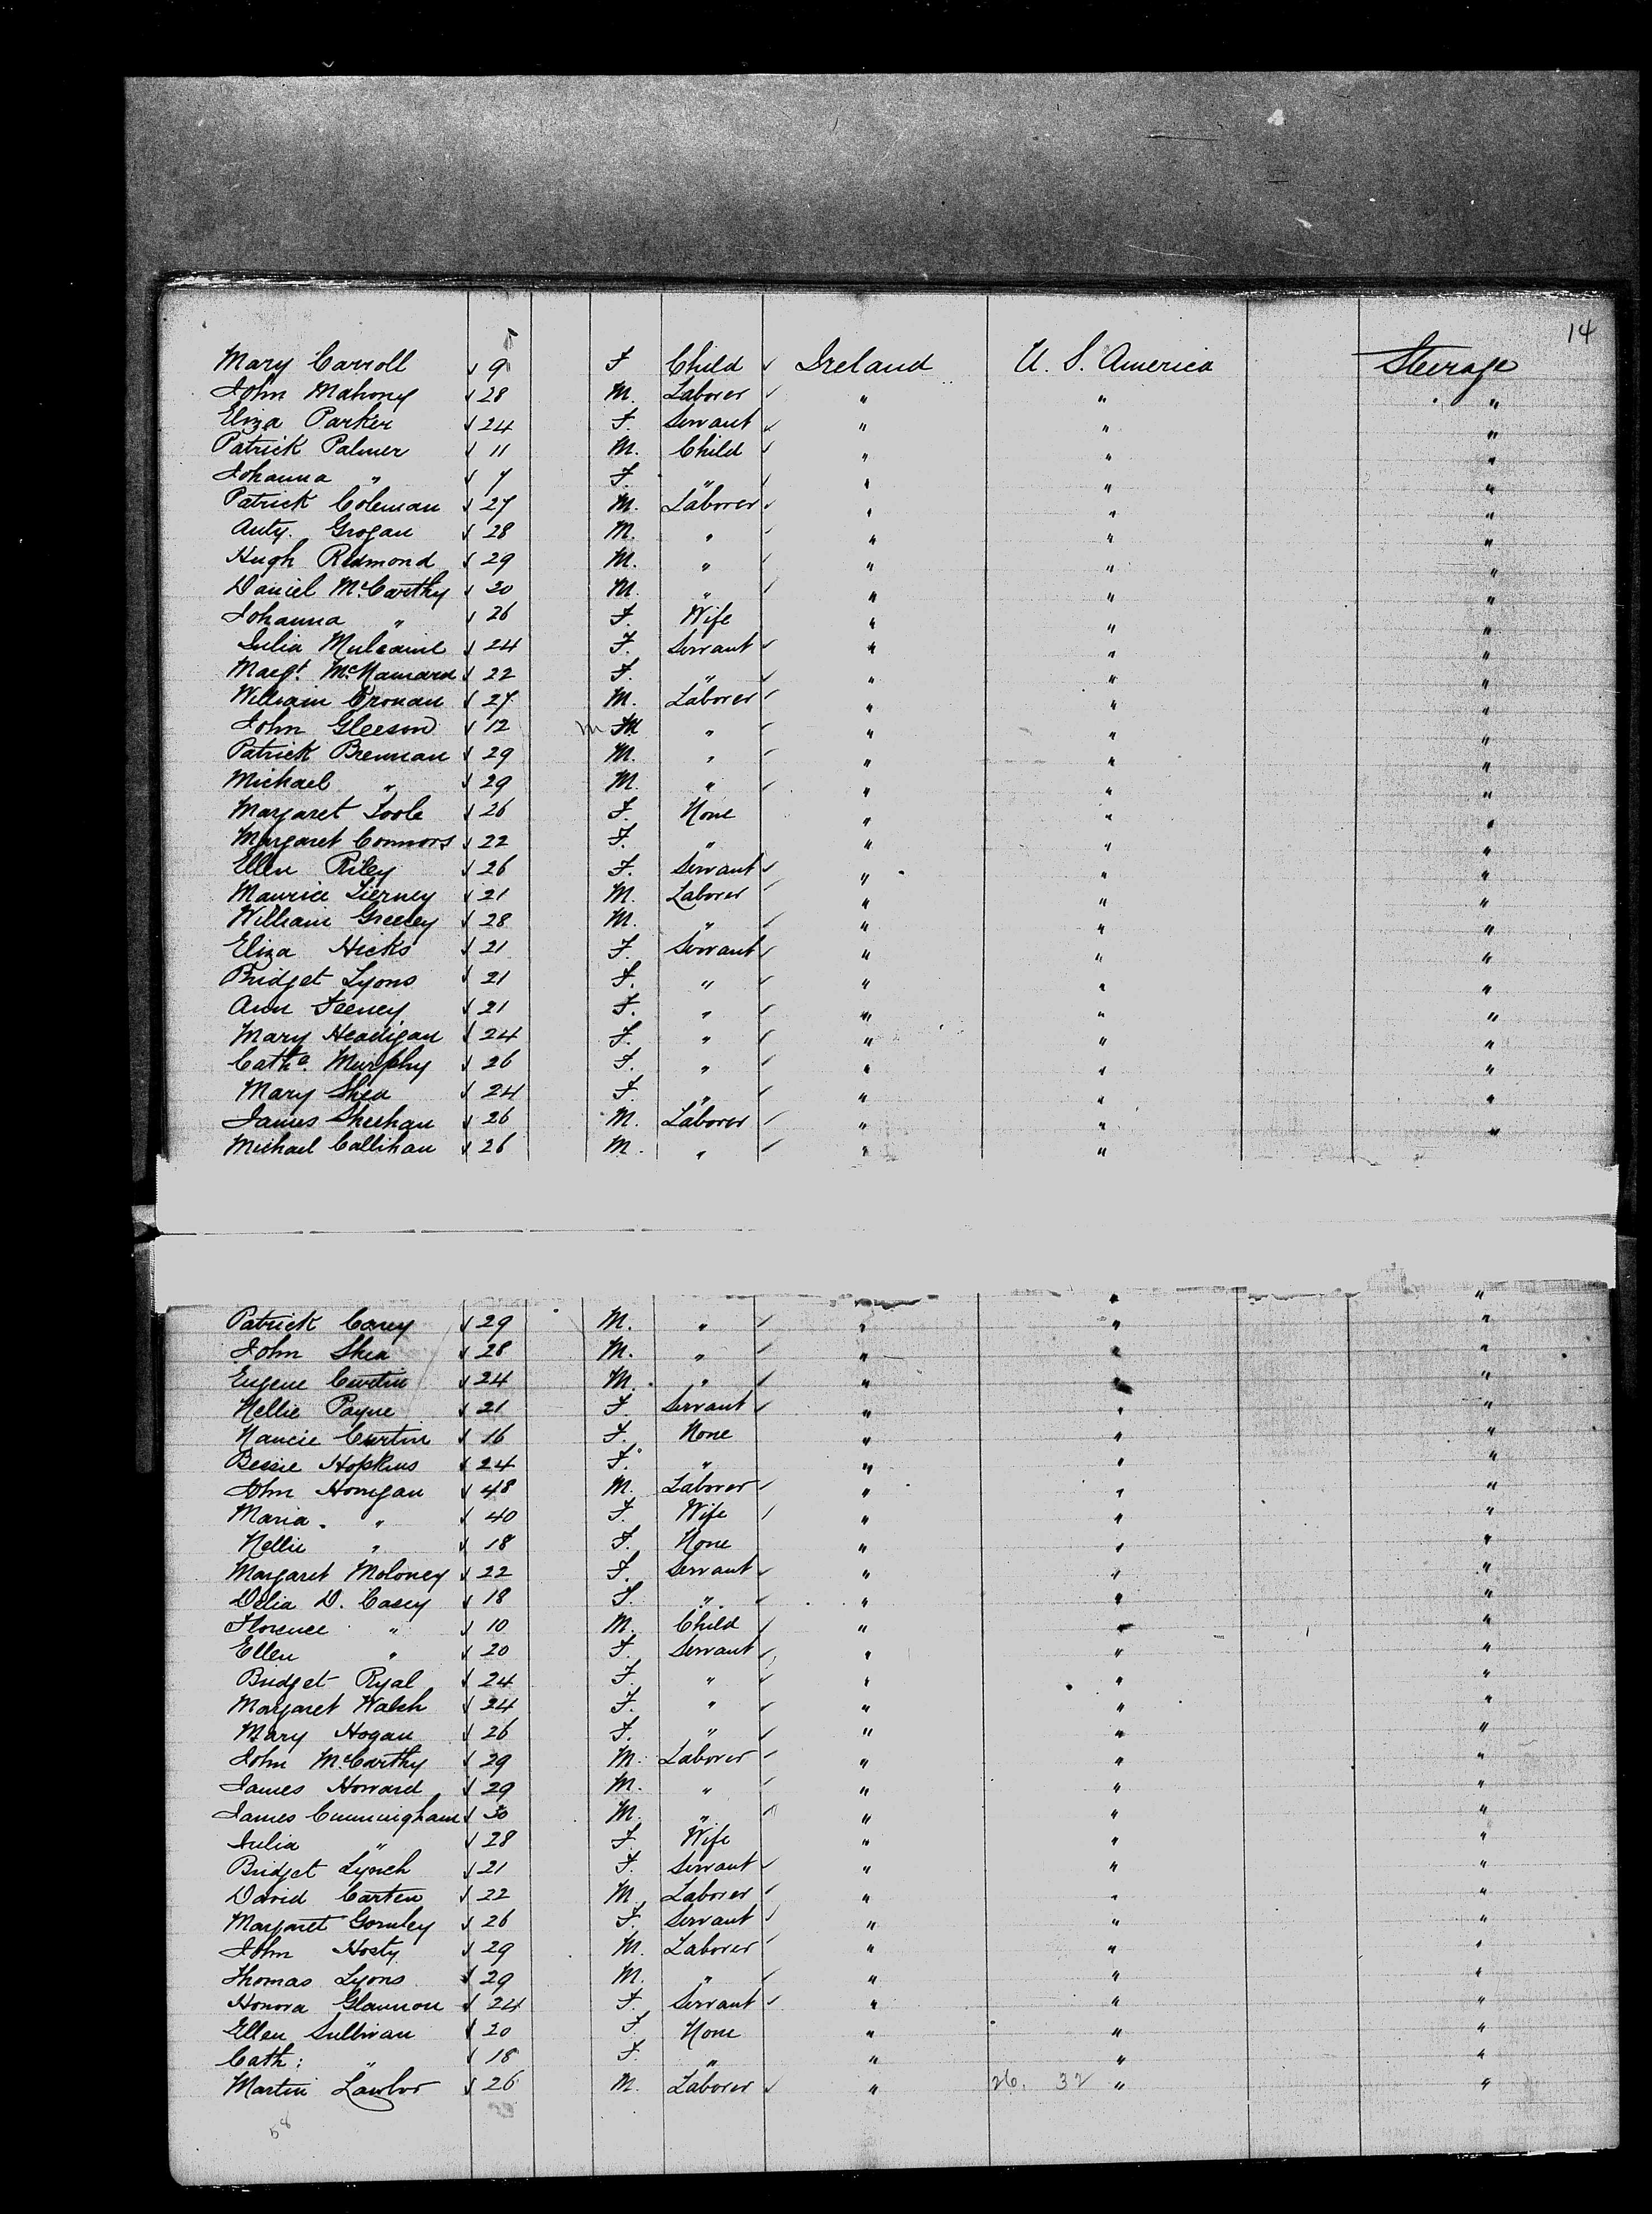 14
Mary Carroll √ 9 F Child √ Ireland U. S. America Steerage
John Mahony √ 28 M. Laborer √ " " "
Eliza Parker √ 24 F. Servant √ " " "
Patrick Palmer √ 11 M. Child √ " " "
Johanna " √ 7 F. " √ " " "
Patrick Coleman √ 27 M. Laborer √ " " "
Anty. Grogan √ 28 M. " √ " " "
Hugh Redmond √ 29 M. " √ " " "
Daniel McCarthy √ 30 M. " √ " " "
Johanna " √ 26 F. Wife " " "
Julia √ 24 F. Servant √ " " "
Margt. McNamara √ 22 F. " √ " " "
William Cronan √ 27 M. Laborer √ " " "
John Gleeson √ 12 M " √ " " "
Patrick Brennan √ 29 M. " √ " " "
Michael " √ 29 M. " √ " " "
Margaret Toole √ 26 F. None " " "
Margaret Connors √ 22 F. " " " "
Ellen Riley √ 26 F. Servant √ " " "
Maurice Tierney √ 21 M. Laborer √ " " "
William Greeley √ 28 M. " √ " " "
Eliza Hicks √ 21 F. Servant √ " " "
Bridget Lyons √ 21 F. " √ " " "
Ann Feeney √ 21 F. " √ " " "
Mary Headigan √ 24 F. " √ " " "
Catha. Murphy √ 26 F. " √ " " "
Mary Shea √ 24 F. " √ " " "
James Sheehan √ 26 M. Laborer √ " " "
Michael Callihan √ 26 M. " √ " " "
" "
Patrick Carey √ 29 M. " √ " " "
John Shea √ 28 M. " √ " " "
Eugene Curtin √ 24 M. " √ " " "
Nellie Payne √ 21 F Servant √ " " "
Nancie Curtin √ 16 F. None " " "
Bessie Hopkins √ 24 F. " " " "
John Horrigan √ 48 M. Laborer √ " " "
Maria " √ 40 F. Wife √ " " "
Nellie " √ 18 F. None " " "
Margaret Moloney √ 22 F. Servant √ " " "
Delia D. Casey √ 18 F. " √ " " "
Florence " √ 10 M. Child √ " " "
Ellen " √ 20 F. Servant √ " " "
Bridget Ryal √ 24 F. " √ " " "
Margaret Walsh √ 24 F. " √ " " "
Mary Hogan √ 26 F. " √ " " "
John McCarthy √ 29 M. Laborer √ " " "
James Howard √ 29 M. " √ " " "
James Cunningham √ 30 M. " √ " " "
Julia " √ 28 F. Wife " " "
Bridget Lynch √ 21 F. Servant √ " " "
David Carten √ 22 M. Laborer √ " " "
Margaret Gormley √ 26 F. Servant √ " " "
John Hosty √ 29 M. Laborer √ " " "
Thomas Lyons √ 29 M. " √ " " "
Honora Glannon √ 24 F. Servant √ " " "
Ellen Sullivan √ 20 F. None " " "
Cath: " √ 18 F. " " " "
Martin Lawlor √ 26 M. Laborer √ " 26. 32 " "
58